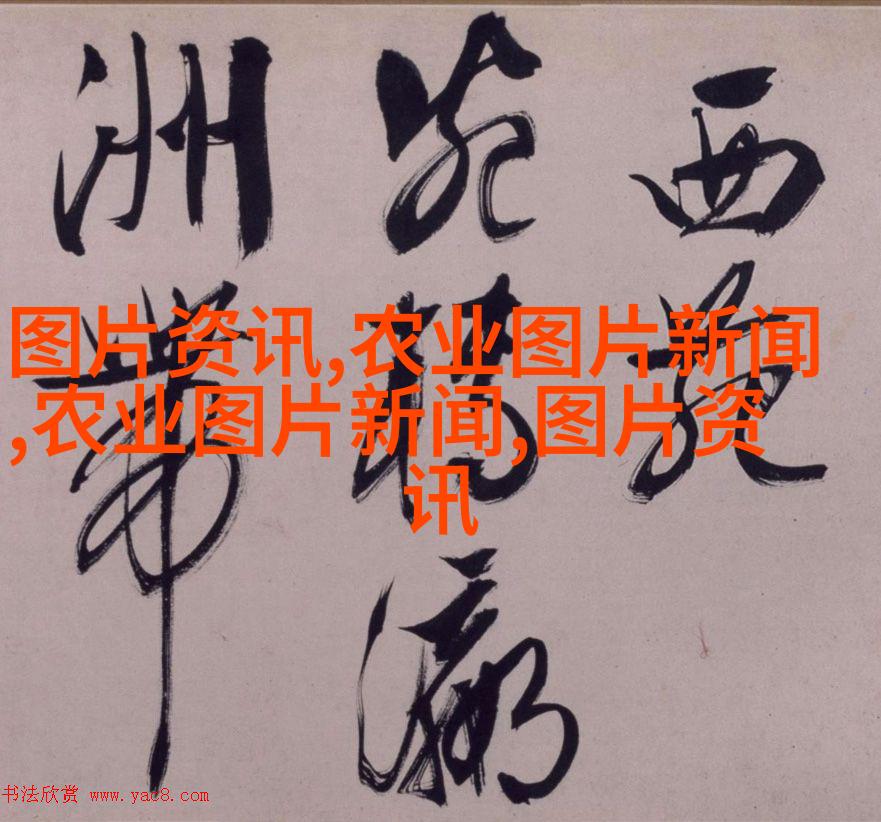 西
瀛
洲帶
图片资讯,农业图片新闻
,农业图片新闻,图片资
讯
书法欣赏 www.yac8.com